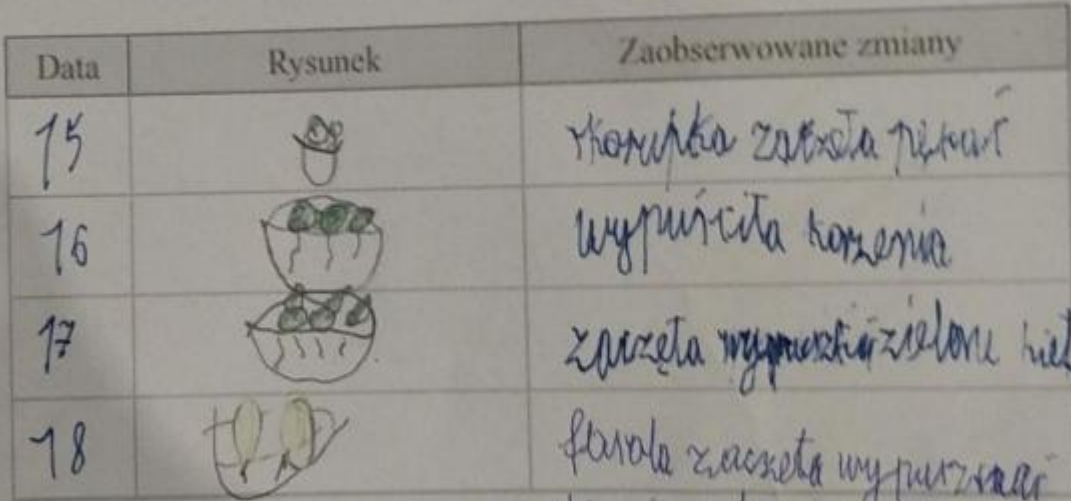 Data Rysunek Zaobserwowane zmiany
15 skorupka zaczęła pękać
16 wypuściła korzenia
17 zaczęła zielone kieł
18 fasola zaczęła wypuszczać